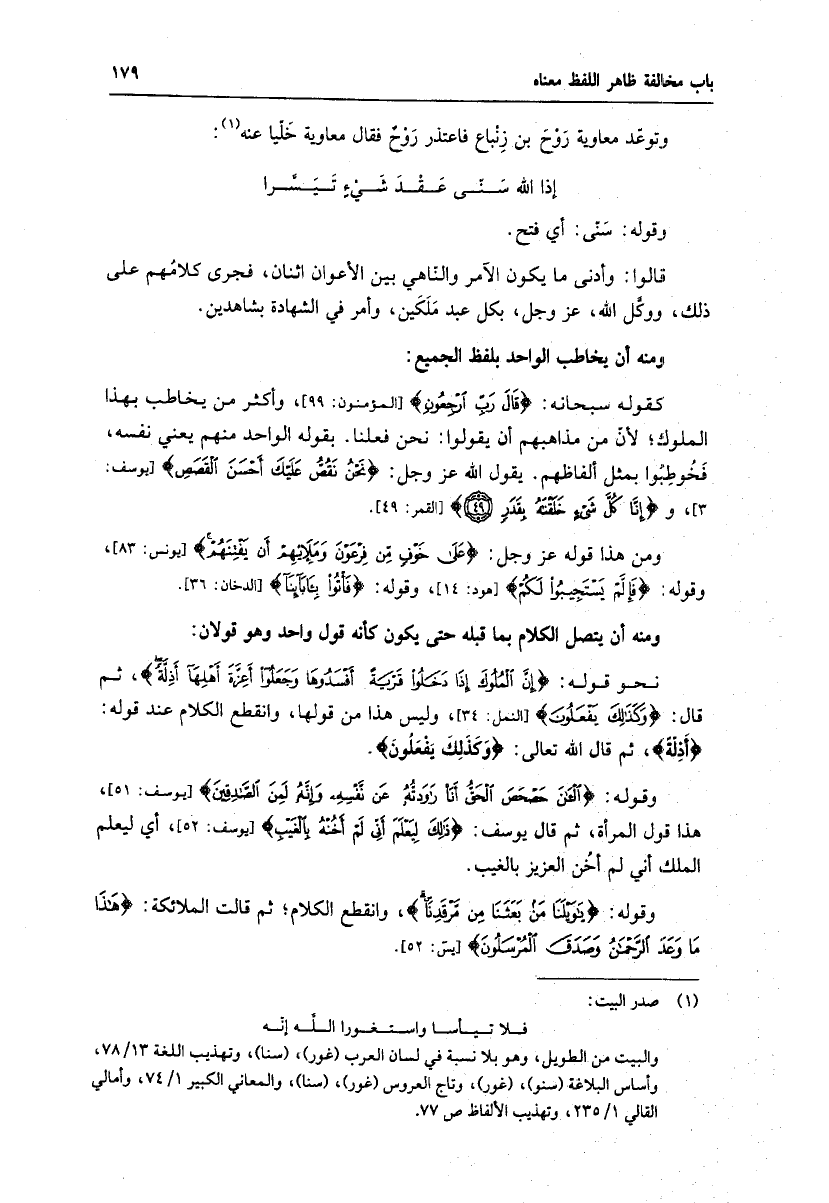 باب مخالفة ظاهر اللفظ معناه ١٧٩
وتوعّد معاوية رَوْحَ بن زِنْباع فاعتذر رَوْحٌ فقال معاوية خَلّيا عنه(١):
إذا الله سَنّى عَقْدَ شَيْءٍ تَيَسَّرا
وقوله: سَنّى: أي فتح.
قالوا: وأدنى ما يكون الآمر والنّاهي بين الأعوان اثنان، فجرى كلامُهم على
ذلك، ووكَّل الله، عز وجل، بكل عبد مَلَكين، وأمر في الشهادة بشاهدين.
ومنه أن يخاطب الواحد بلفظ الجميع:
كقوله سبحانه: ﴿قَالَ رَبِّ ٱرْجِعُونِ﴾ [المؤمنون: ٩٩]، وأكثر من يخاطب بهذا
الملوك؛ لأنّ من مذاهبهم أن يقولوا: نحن فعلنا. بقوله الواحد منهم يعني نفسه،
فَخُوطِبُوا بمثل ألفاظهم. يقول الله عز وجل: ﴿نَحْنُ نَقُصُّ عَلَيْكَ أَحْسَنَ ٱلْقَصَصِ﴾ [يوسف:
٣]، و ﴿إِنَّا كُلَّ شَيْءٍ خَلَقْنَٰهُ بِقَدَرٍ ۝٤٩﴾ [القمر: ٤٩].
ومن هذا قوله عز وجل: ﴿عَلَىٰ خَوْفٍ مِّن فِرْعَوْنَ وَمَلَإِيْهِمْ أَن يَفْتِنَهُمْ ۚ﴾ [يونس: ٨٣]،
وقوله: ﴿فَإِلَّمْ يَسْتَجِيبُوا۟ لَكُمْ﴾ [هود: ١٤]، وقوله: ﴿فَأْتُوا۟ بِـَٔابَآئِنَآ﴾ [الدخان: ٣٦].
ومنه أن يتصل الكلام بما قبله حتى يكون كأنه قول واحد وهو قولان:
نحو قوله: ﴿إِنَّ ٱلْمُلُوكَ إِذَا دَخَلُوا۟ قَرْيَةً أَفْسَدُوهَا وَجَعَلُوٓا۟ أَعِزَّةَ أَهْلِهَآ أَذِلَّةً ۖ﴾، ثم
قال: ﴿وَكَذَٰلِكَ يَفْعَلُونَ﴾ [النمل: ٣٤]، وليس هذا من قولها، وانقطع الكلام عند قوله:
﴿أَذِلَّةً﴾، ثم قال الله تعالى: ﴿وَكَذَلِكَ يَفْعَلُونَ﴾.
وقوله: ﴿ٱلْـَٰٔنَ حَصْحَصَ ٱلْحَقُّ أَنَا۠ رَٰوَدتُّهُۥ عَن نَّفْسِهِۦ وَإِنَّهُۥ لَمِنَ ٱلصَّٰدِقِينَ﴾ [يوسف: ٥١]،
هذا قول المرأة، ثم قال يوسف: ﴿ذَٰلِكَ لِيَعْلَمَ أَنِّى لَمْ أَخُنْهُ بِٱلْغَيْبِ﴾ [يوسف: ٥٢]، أي ليعلم
الملك أني لم أخُن العزيز بالغيب.
وقوله: ﴿يَٰوَيْلَنَا مَنۢ بَعَثَنَا مِن مَّرْقَدِنَا ۜ﴾، وانقطع الكلام؛ ثم قالت الملائكة: ﴿هَٰذَا
مَا وَعَدَ ٱلرَّحْمَٰنُ وَصَدَقَ ٱلْمُرْسَلُونَ﴾ [يسَ: ٥٢].
(١) صدر البيت:
فلا تيأسا واستغورا اللَّه إنّه
والبيت من الطويل، وهو بلا نسبة في لسان العرب (غور)، (سنا)، وتهذيب اللغة ١٣/ ٧٨،
وأساس البلاغة (سنو)، (غور)، وتاج العروس (غور)، (سنا)، والمعاني الكبير ١/ ٧٤، وأمالي
القالي ١/ ٢٣٥، وتهذيب الألفاظ ص ٧٧.